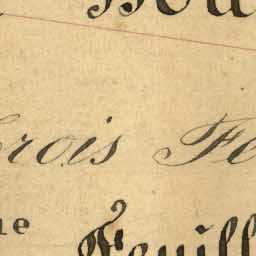 rois Fe
ne Feuill